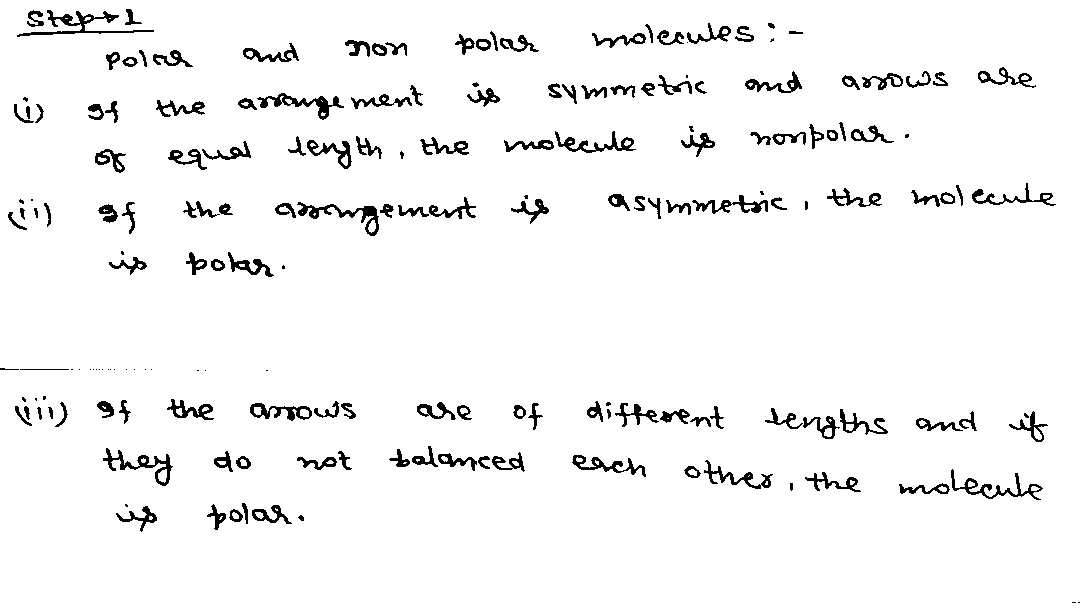 Step→1
Polar and non polar molecules :-
(i) If the arrangement is symmetric and arrows are
of equal length, the molecule is nonpolar.
(ii) If the arrangement is asymmetric, the molecule
is polar.
(iii) If the arrows are of different lengths and if
they do not balanced each other, the molecule
is polar.